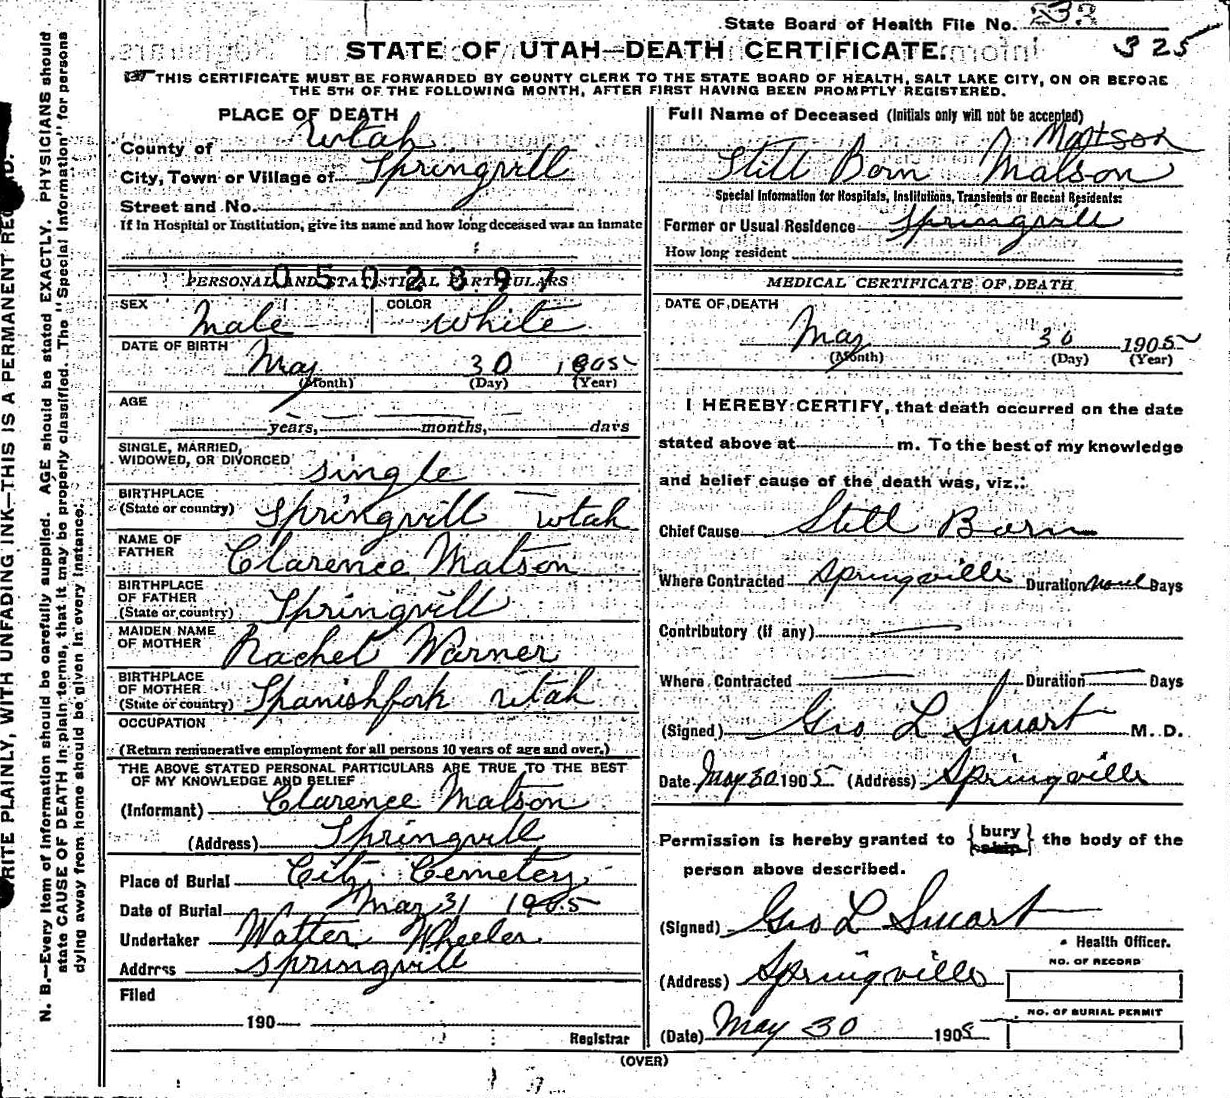 State Board of Health File No. 232
325
STATE OF UTAH—DEATH CERTIFICATE.
THIS CERTIFICATE MUST BE FORWARDED BY COUNTY CLERK TO THE STATE BOARD OF HEALTH, SALT LAKE CITY, ON OR BEFORE
THE 5TH OF THE FOLLOWING MONTH, AFTER FIRST HAVING BEEN PROMPTLY REGISTERED.
RITE PLAINLY, WITH UNFADING INK—THIS IS A PERMANENT REC D.
N. B.—Every item of information should be carefully supplied. AGE should be stated EXACTLY. PHYSICIANS should
state CAUSE OF DEATH in plain terms, that it may be properly classified. The "Special Information" for persons
dying away from home should be given in every instance.
PLACE OF DEATH
County of Utah
City, Town or Village of Springvill
Street and No.
If in Hospital or Institution, give its name and how long deceased was an inmate
0502897
PERSONAL AND STATISTICAL PARTICULARS
SEX Male COLOR White
DATE OF BIRTH May 30 1905
(Month) (Day) (Year)
AGE
years, months, days
SINGLE, MARRIED,
WIDOWED, OR DIVORCED single
BIRTHPLACE
(State or country) Springvill utah
NAME OF
FATHER Clarence Matson
BIRTHPLACE
OF FATHER
(State or country) Springvill
MAIDEN NAME
OF MOTHER Rachel Warner
BIRTHPLACE
OF MOTHER
(State or country) Spanishfork utah
OCCUPATION
(Return remunerative employment for all persons 10 years of age and over.)
THE ABOVE STATED PERSONAL PARTICULARS ARE TRUE TO THE BEST
OF MY KNOWLEDGE AND BELIEF
(Informant) Clarence Matson
(Address) Springvill
Place of Burial City Cemetery
Date of Burial May 31 1905
Undertaker Walter Wheeler
Address Springvill
Filed
190
Registrar
Full Name of Deceased (Initials only will not be accepted)
Matson
Still Born Matson
Special Information for Hospitals, Institutions, Transients or Recent Residents:
Former or Usual Residence Springvill
How long resident
MEDICAL CERTIFICATE OF DEATH
DATE OF DEATH
May 30 1905
(Month) (Day) (Year)
I HEREBY CERTIFY, that death occurred on the date
stated above at m. To the best of my knowledge
and belief cause of the death was, viz.:
Chief Cause Still Born
Where Contracted Springville Duration none Days
Contributory (if any)
Where Contracted Duration Days
(Signed) Geo L Smart M. D.
Date May 30 1905 (Address) Springville
Permission is hereby granted to {bury ship} the body of the
person above described.
(Signed) Geo L Smart
Health Officer.
(Address) Springville
NO. OF RECORD
NO. OF BURIAL PERMIT
(Date) May 30 1905
(OVER)